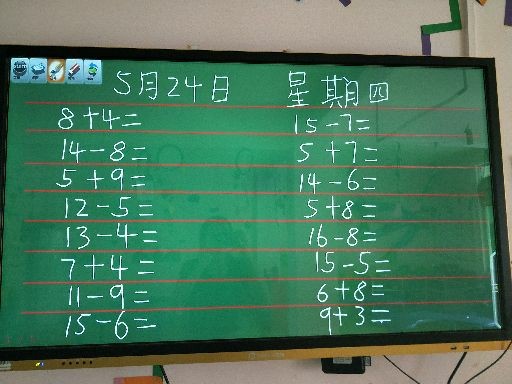 5月24日 星期四
8+4= 15-7=
14-8= 5+7=
5+9= 14-6=
12-5= 5+8=
13-4= 16-8=
7+4= 15-5=
11-9= 6+8=
15-6= 9+3=